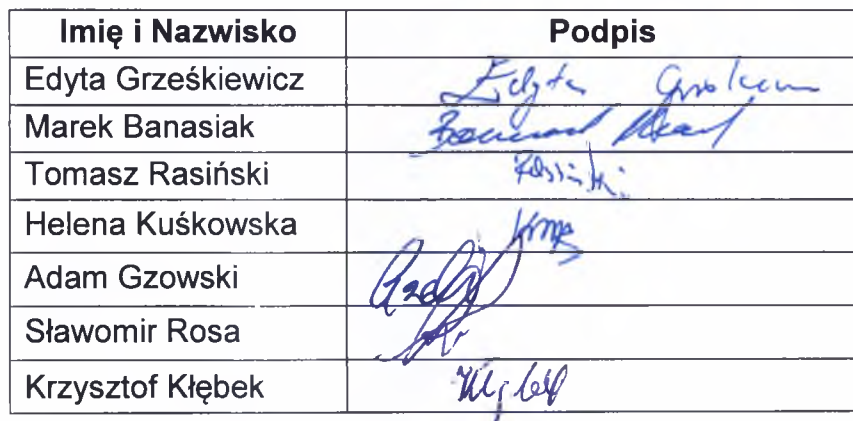 Imię i Nazwisko Podpis
Edyta Grześkiewicz Edyta
Marek Banasiak
Tomasz Rasiński Rasiński
Helena Kuśkowska
Adam Gzowski
Sławomir Rosa
Krzysztof Kłębek